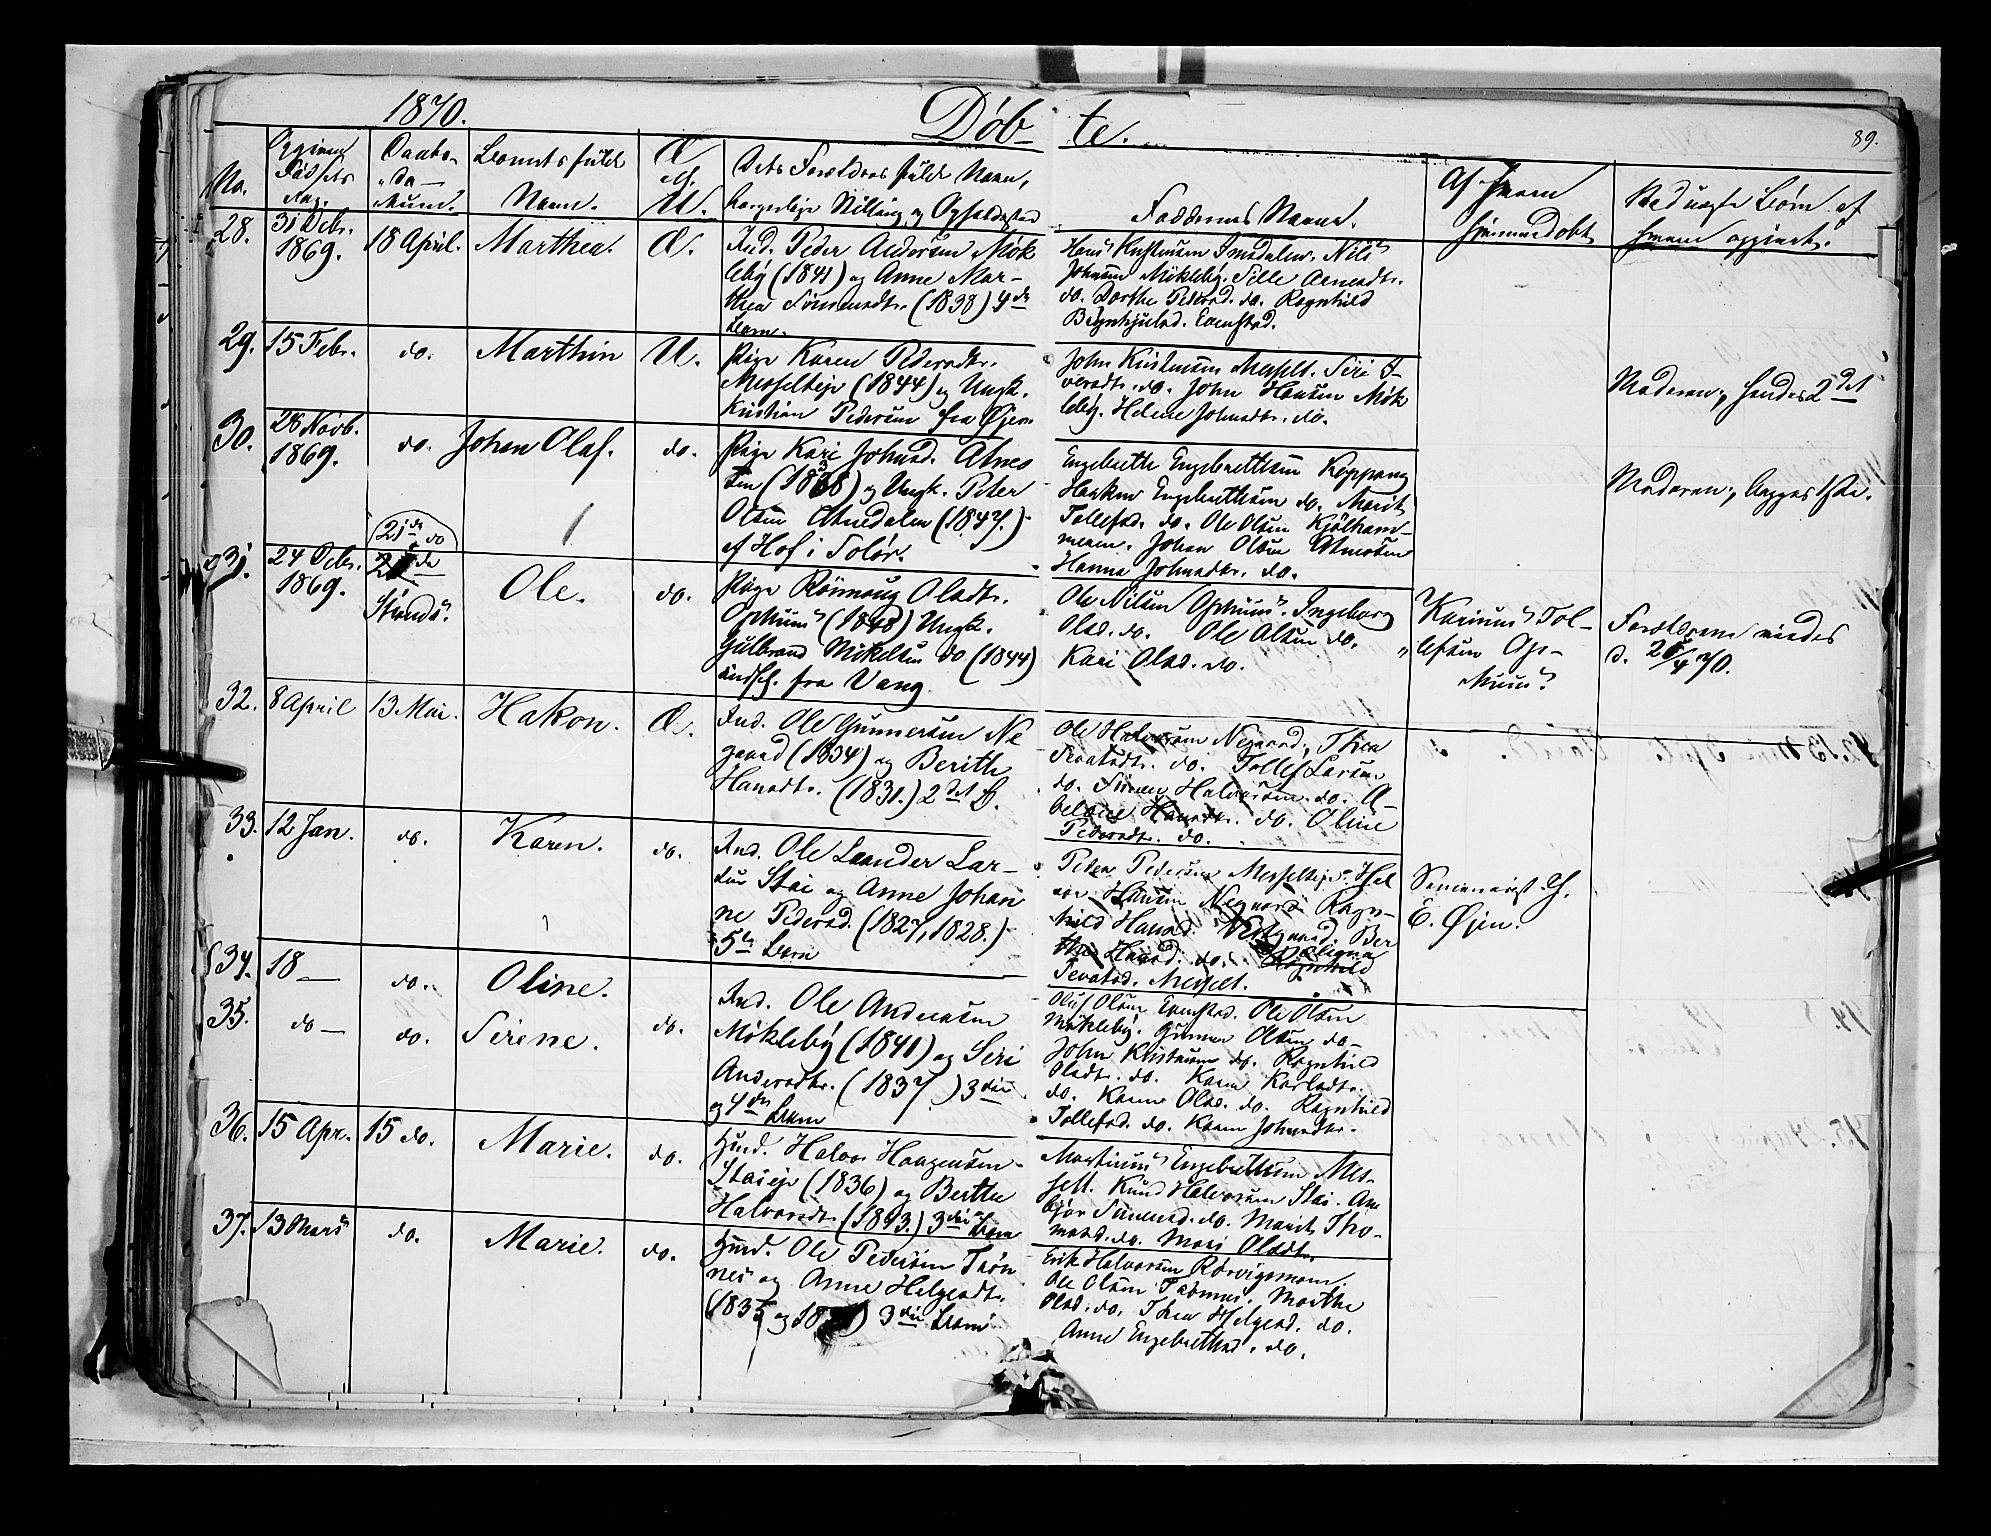 1870.
Døb-
te.
89.
No.
Opgiven
Fødsels
dag.
Daabs-
da-
tum.
Barnets fulde
Navn.
Æ.
el.
U.
Dets Forældres fulde Navn,
borgerlige Stilling og Opholdssted
Faddernes Navne.
Af hvem
hjemmedøbt
Ved uægte Børn af
hvem opgivet.
28.
31 Decbr.
1869.
18 April.
Marthea.
Æ.
Ind. Peder Andersen Møk
leby (1841) og Anne Mar-
thea Simensdtr. (1838) 4de
Barn.
Hans Kristensen Imsdalen. Nils
Johnsen Mökleby. Sille Arnesdtr.
do. Dorthe Pedersd. do. Ragnhild
Brynhjulsd. Evenstad.
29.
15 Febr.
do.
Marthin
U.
Pige Karen Pedersdtr.
Messelteje (1844) og Ungk.
Kristian Pedersen fra Øjer
John Kristensen Messelt. Siri I-
versdtr. do. John Hansen Møk
leby. Helene Johnsdtr. do.
Moderen, hendes 2det
30.
28 Novb.
1869.
do.
Johan Olaf.
do.
Pige Kari Johnsd. Atneo
sen (1838) og Ungk. Peter
Olsen Atnedalen (1847.)
af Hof i Solør.
Engebrette Engebrettsen Koppang
Haaken Engebrettsen do. Marit
Tollefsd. do. Ole Olsen Kjølham-
meren. Johan Olsen Atneosen
Hanna Johnsdtr. do.
Moderen, begges 1ste.
31.
24 Decbr.
1869.
21de do
Strands
Ole.
do.
Pige Rönnaug Olsdtr.
Ophuus (1848) Ungk.
Gulbrand Mikelsen do (1844)
indfl. fra Vang
Ole Nilsen Ophuus. Ingeborg
Olsd. do. Ole Olsen do.
Kari Olsd. do.
Karinus Tol-
lefsen Op-
huus.
Forældrene viedes
d. 28/4 70.
32.
8 April
13 Mai.
Hakon.
Æ.
Ind. Ole Gunnersen Ne
gaard (1834) og Berith
Hansdtr. (1831.) 2det B.
Ole Halvorsen Negaard, Thea
Sevatsdtr. do. Tollef Larsen
do. Simen Halvorsen do. A-
belone Hansdtr. do. Oline
Pedersdtr. do.
33.
12 Jan.
do.
Karen.
do.
Ind. Ole Leander Lar-
sen Stai og Anne Johan
ne Pedersd. (1827, 1828.)
5te Barn
Peder Pedersen Messelteje. Hal
vor Hansen Negaard Ragn-
hild Hansd. Vestgaard. Ber
the Hansd. do.
Sevatsd. Messelt.
Seminarist H.
E. Øjen.
34.
18 —
do.
Oline.
35.
do —
do.
Sirene.
do.
Ind. Ole Andersen
Mökleby (1841) og Siri
Andersdtr. (1837) 3die
og 4de Barn
Oluf Olsen Evenstad. Ole Olsen
Mökleby. Gunner Olsen do-
John Kristensen do. Ragnhild
Olsdtr. do. Karen Karlsdtr.
do. Karen Olsd. do. Ragnhild
Tollefsd. do. Karen Johnsdtr.
36.
15 Apr.
15 do.
Marie.
do.
Husd. Halvor Haagensen
Staieje (1836) og Berthe
Halvorsdt. (1843.) 3die Barn
Martinus Engebrettsen Mes-
selt. Knud Halvorsen Stai. Am
bjør Simensd. do. Marit Tho-
masd. do. Mari Olsdt.
37.
13 Marts
do.
Marie.
do.
Husd. Ole Pedersen Trön
nes og Anne Helgesdt.
(1835 og 18) 3die Barn
Erik Halvorsen Rørvigsmoen.
Ole Olsen Trönnes. Marthe
Olsd. do. Thea Helgesd. do.
Anne Engebrettsd. do.